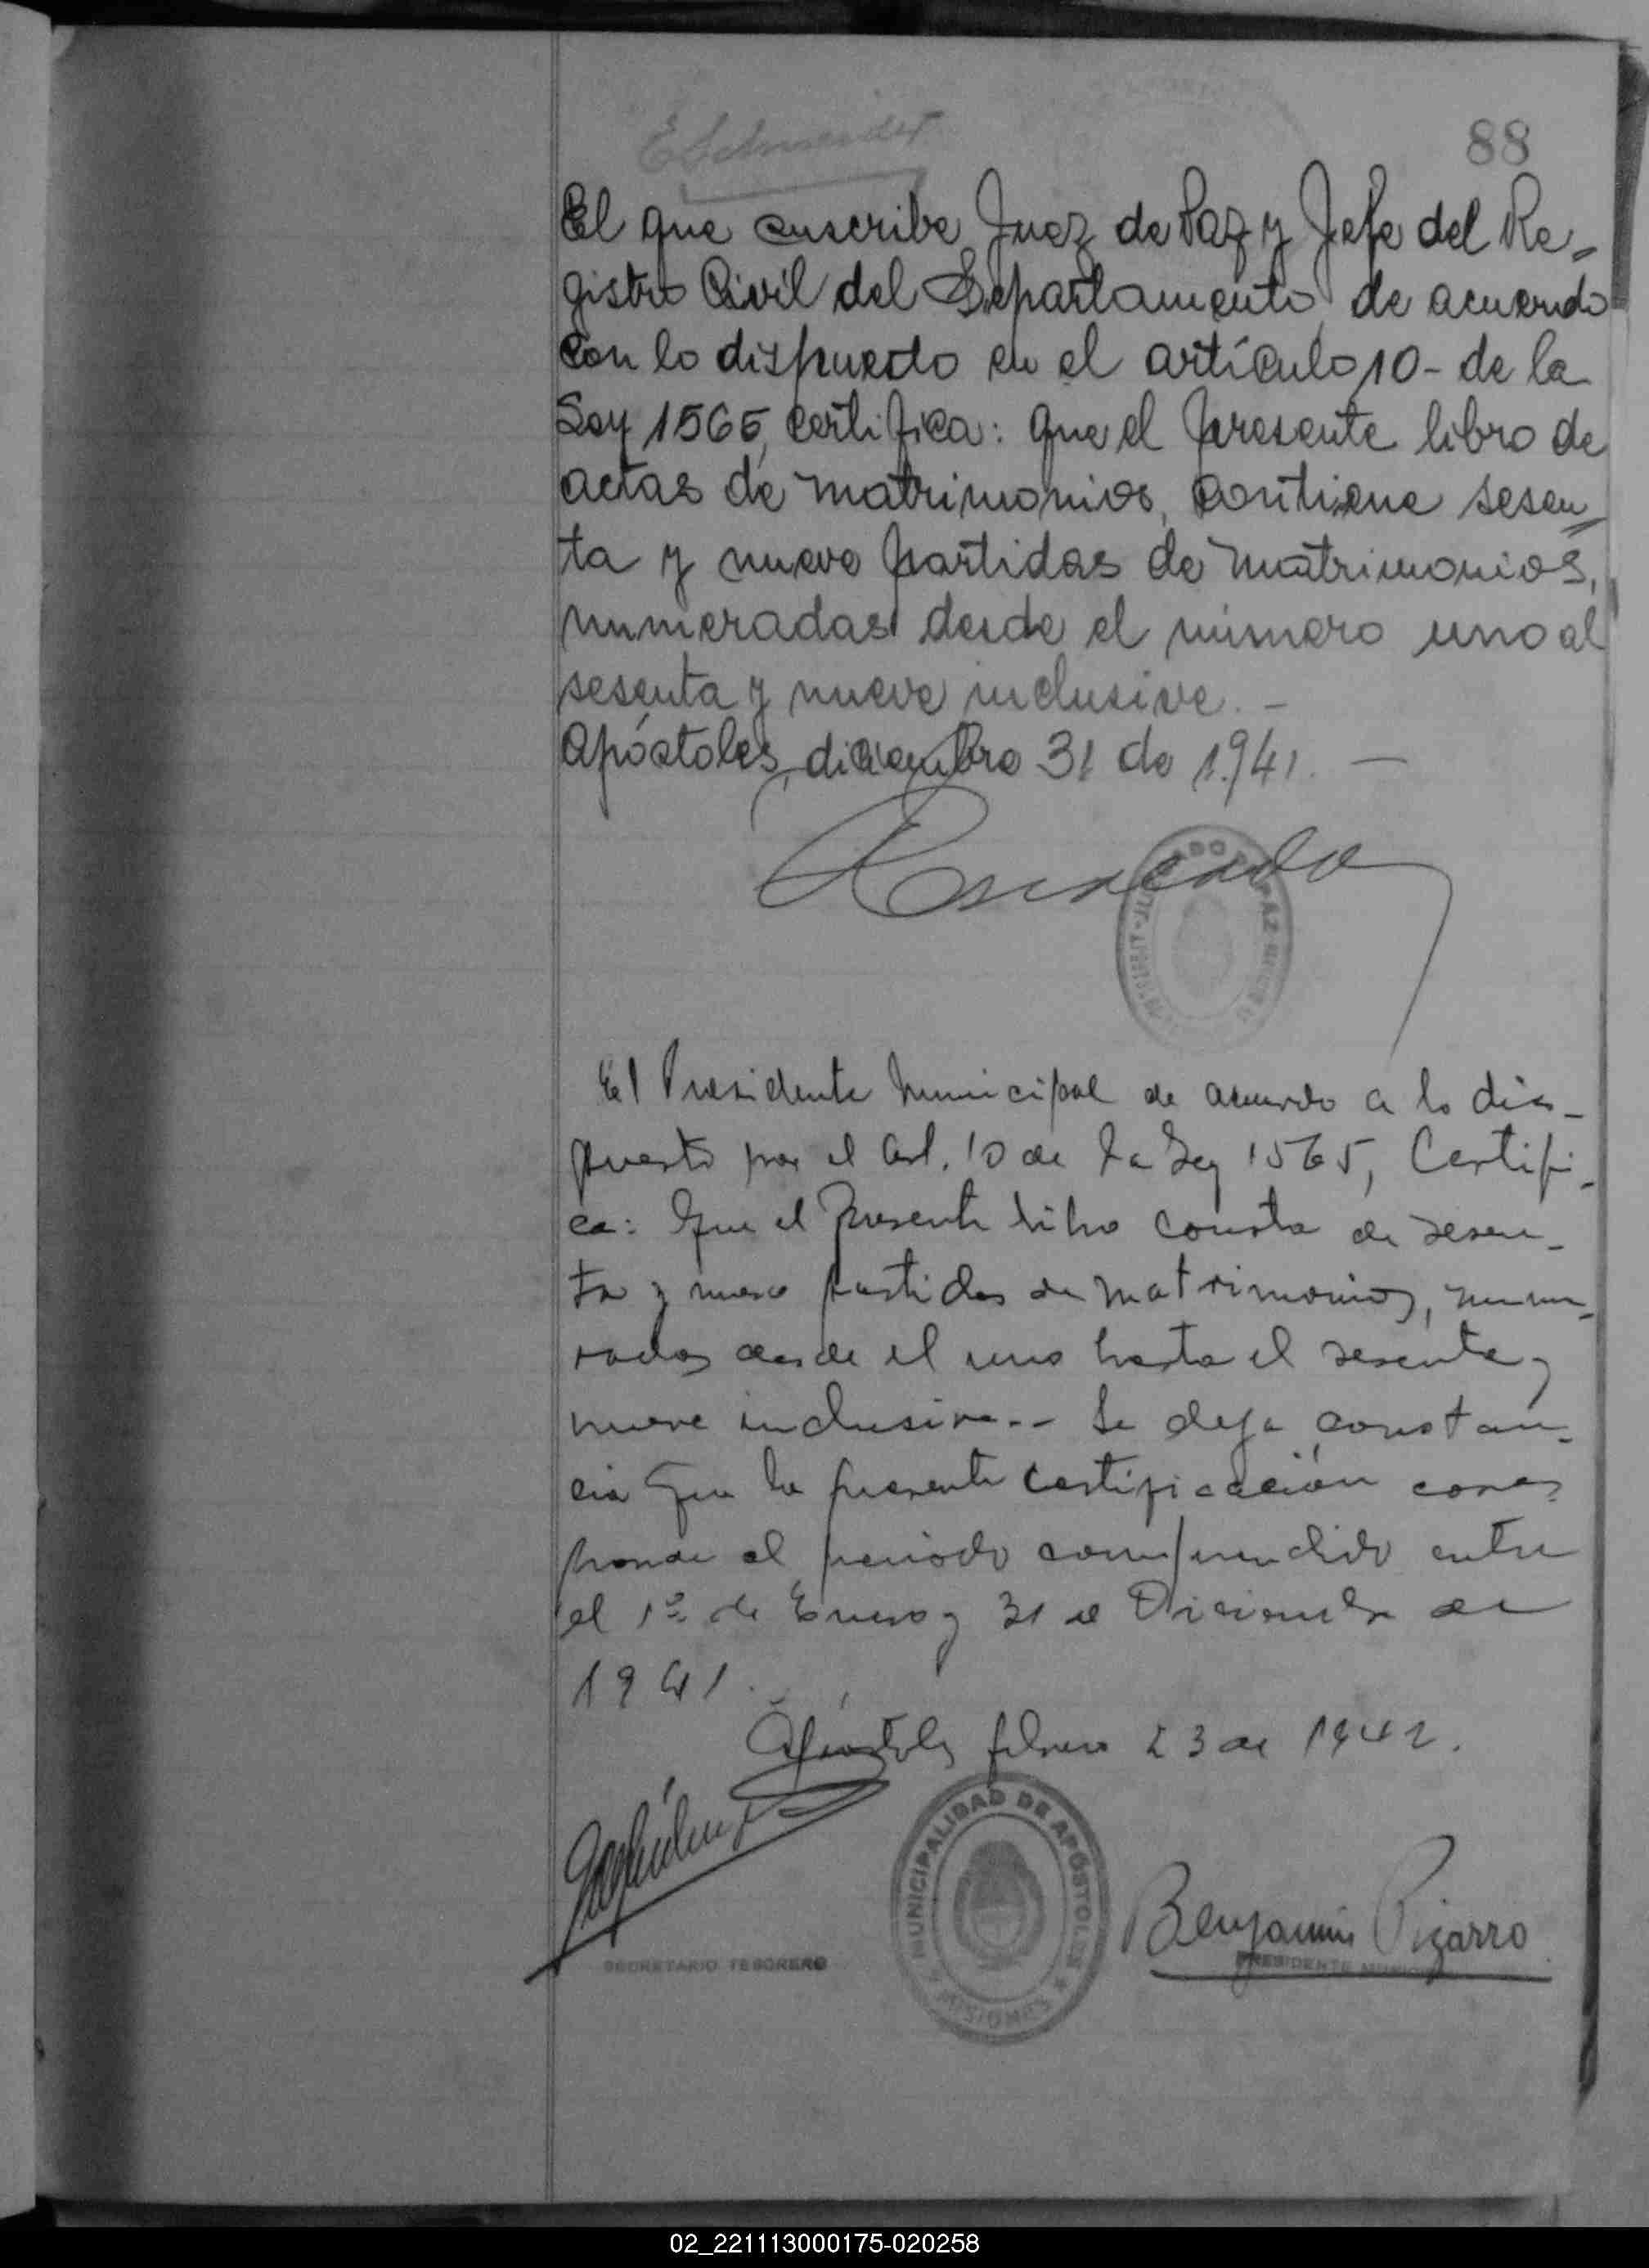 88
El que suscribe Juez de Paz y Jefe del Re-
gistro Civil del Departamento, de acuerdo
con lo dispuesto en el artículo 10 - de la
Ley 1565, certifica: que el presente libro de
actas de matrimonios, contiene sesen-
ta y nueve partidas de matrimonios,
numeradas desde el número uno al
sesenta y nueve inclusive. -
Apóstoles, diciembre 31 de 1.941. —
El Presidente Municipal de acuerdo a lo dis-
puesto por el Art. 10 de la Ley 1565, Certifi-
ca: Que el presente libro consta de sesen-
ta y nueve partidas de matrimonios, nume-
radas desde el uno hasta el sesenta y
nueve inclusive.-- Se deja constan-
cia que la presente certificación corres-
ponde al periodo comprendido entre
el 1º de Enero y 31 de Diciembre de
1941.
Apóstoles febrero 23 de 1942.
MUNICIPALIDAD DE APÓSTOLES
MISIONES
Benjamin Pizarro
SECRETARIO TESORERO
PRESIDENTE MUNICIPAL
02_221113000175-020258